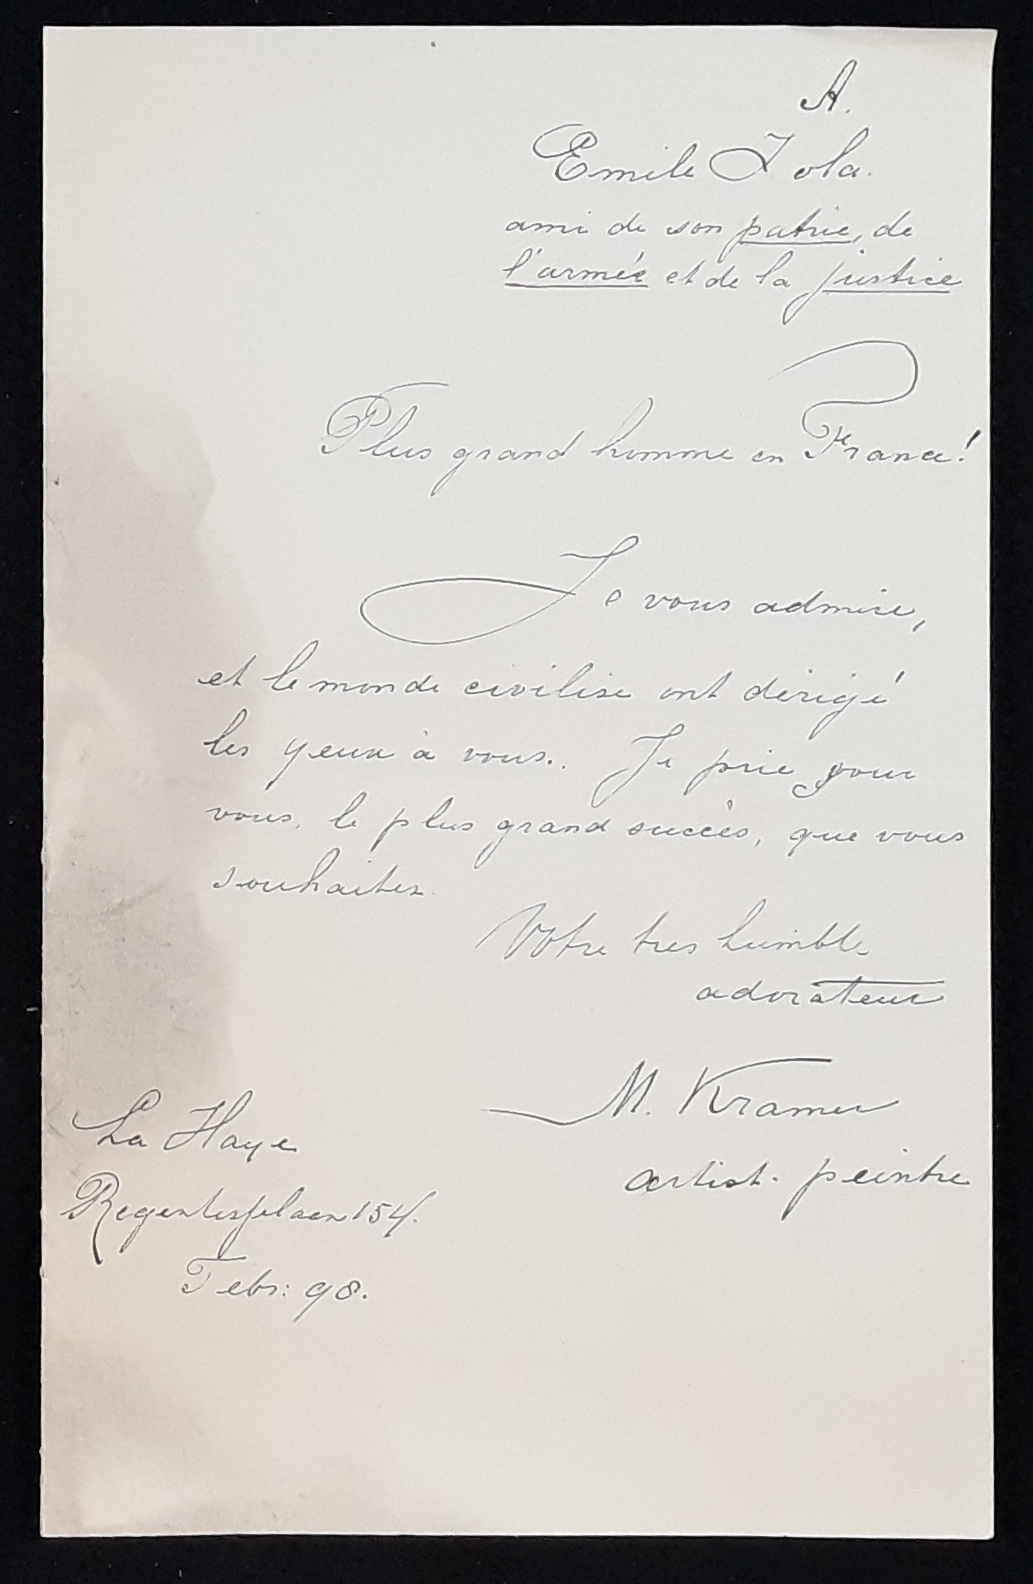 A.
Emile Zola.
ami de son patrie, de
l'armée et de la justice
Plus grand homme en France!
Je vous admire,
et le monde civilise ont dirigé
les yeux à vous.. Je prie pour
vous, le plus grand succès, que vous
souhaitez.
Votre tres humble
adorateur
M. Kramer
artist. peintre
La Haye
Regentesselaan 154.
Febr: 98.